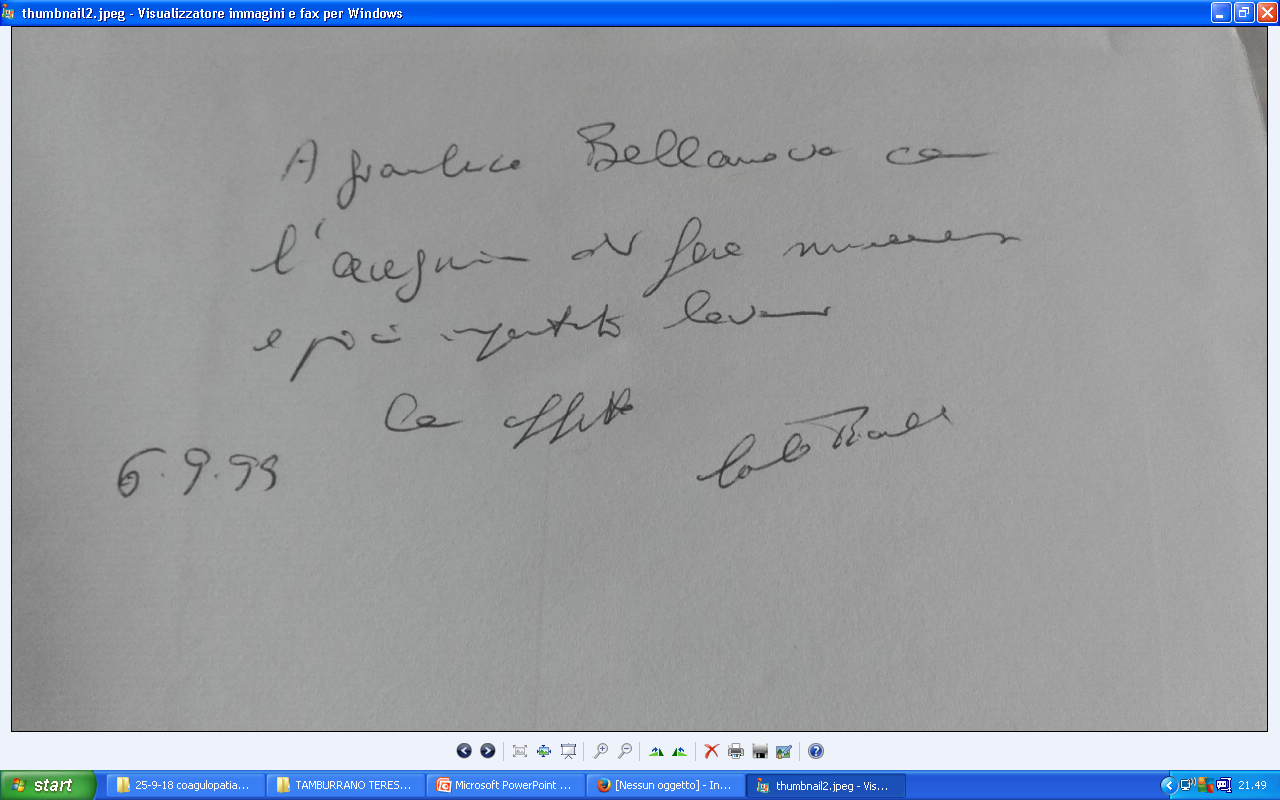 thumbnail2.jpeg - Visualizzatore immagini e fax per Windows
A Gianluca Bellanova con
l'augurio di fare numerosi
e più importanti lavori
Con affetto
Carlo
6.9.99
start
25-9-18 coagulopatia...
TAMBURRANO TERES...
Microsoft PowerPoint ...
[Nessun oggetto] - In...
thumbnail2.jpeg - Vis...
21.49